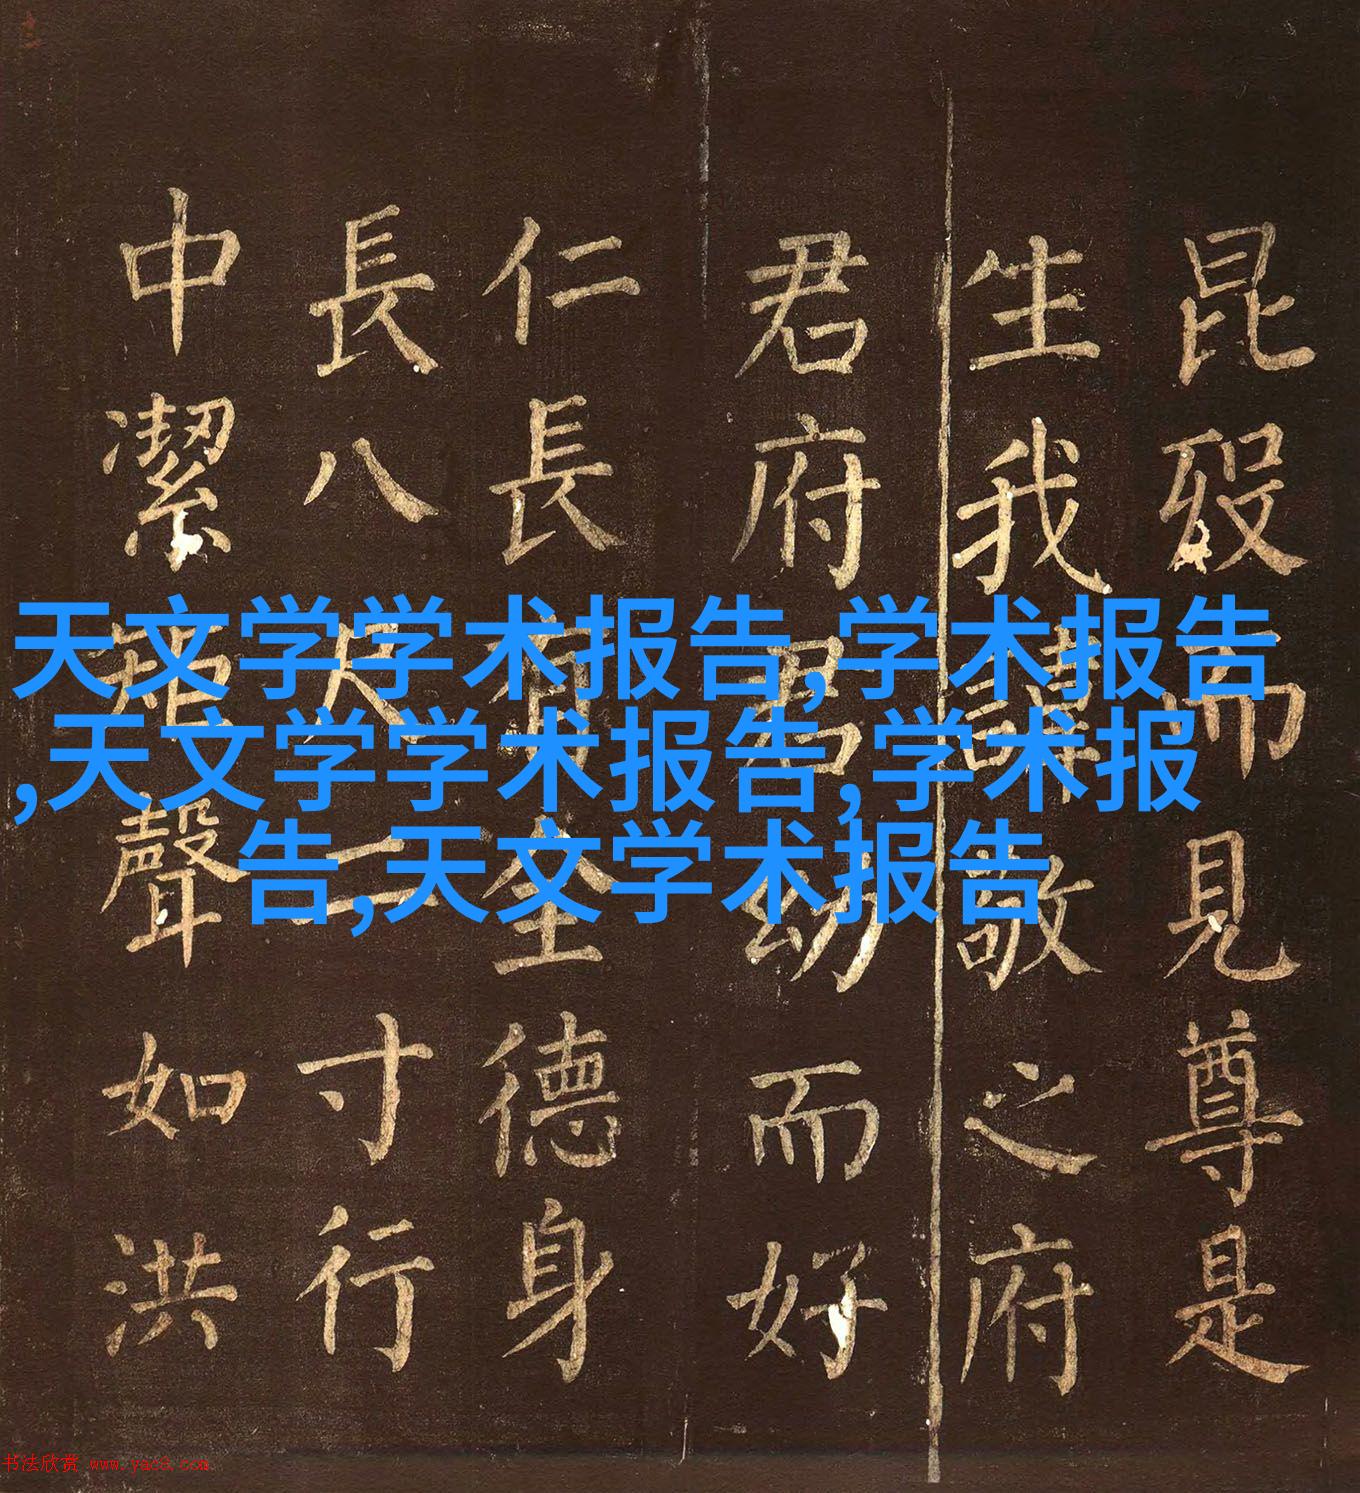 昆歿而見尊是
生我諱敬之府
君府君幼而好
仁長有全德身
長八尺二寸行
中潔矩聲如洪
天文学学术报告,学术报告
,天文学学术报告,学术报
告,天文学术报告
书法欣赏 www.yac8.com